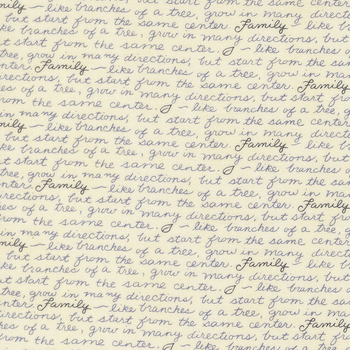 Family – like branches of a tree, grow in many
but start from the same center. Family – like
branches of a tree, grow in many directions,
but start from the same center. – like branches
center. Family – like branches of a tree, grow in
a tree, grow in many directions, but start from the
directions, but start from the same center. Family
of a tree, grow in many directions, but start
from the same center. – like branches of a tree,
in many directions, but start from the same center.
Family – like branches of a tree, grow in many
but start from the same center. Family – like
branches of a tree, grow in many directions,
start from the same center. – like branches of
center. Family – like branches of a tree, grow in many
directions, but start from the same center. Family
of a tree, grow in many directions, but start
from the same center. – like branches of a tree,
in many directions, but start from the same center.
Family – like branches of a tree, grow in many
but start from the same center. Family – like
branches of a tree, grow in many directions,
start from the same center. – like branches of
tree, grow in many directions, but start from the
center. Family – like branches of a tree, grow in
directions, but start from the same center. Family
of a tree, grow in many directions, but start
from the same center. – like branches of a tree,